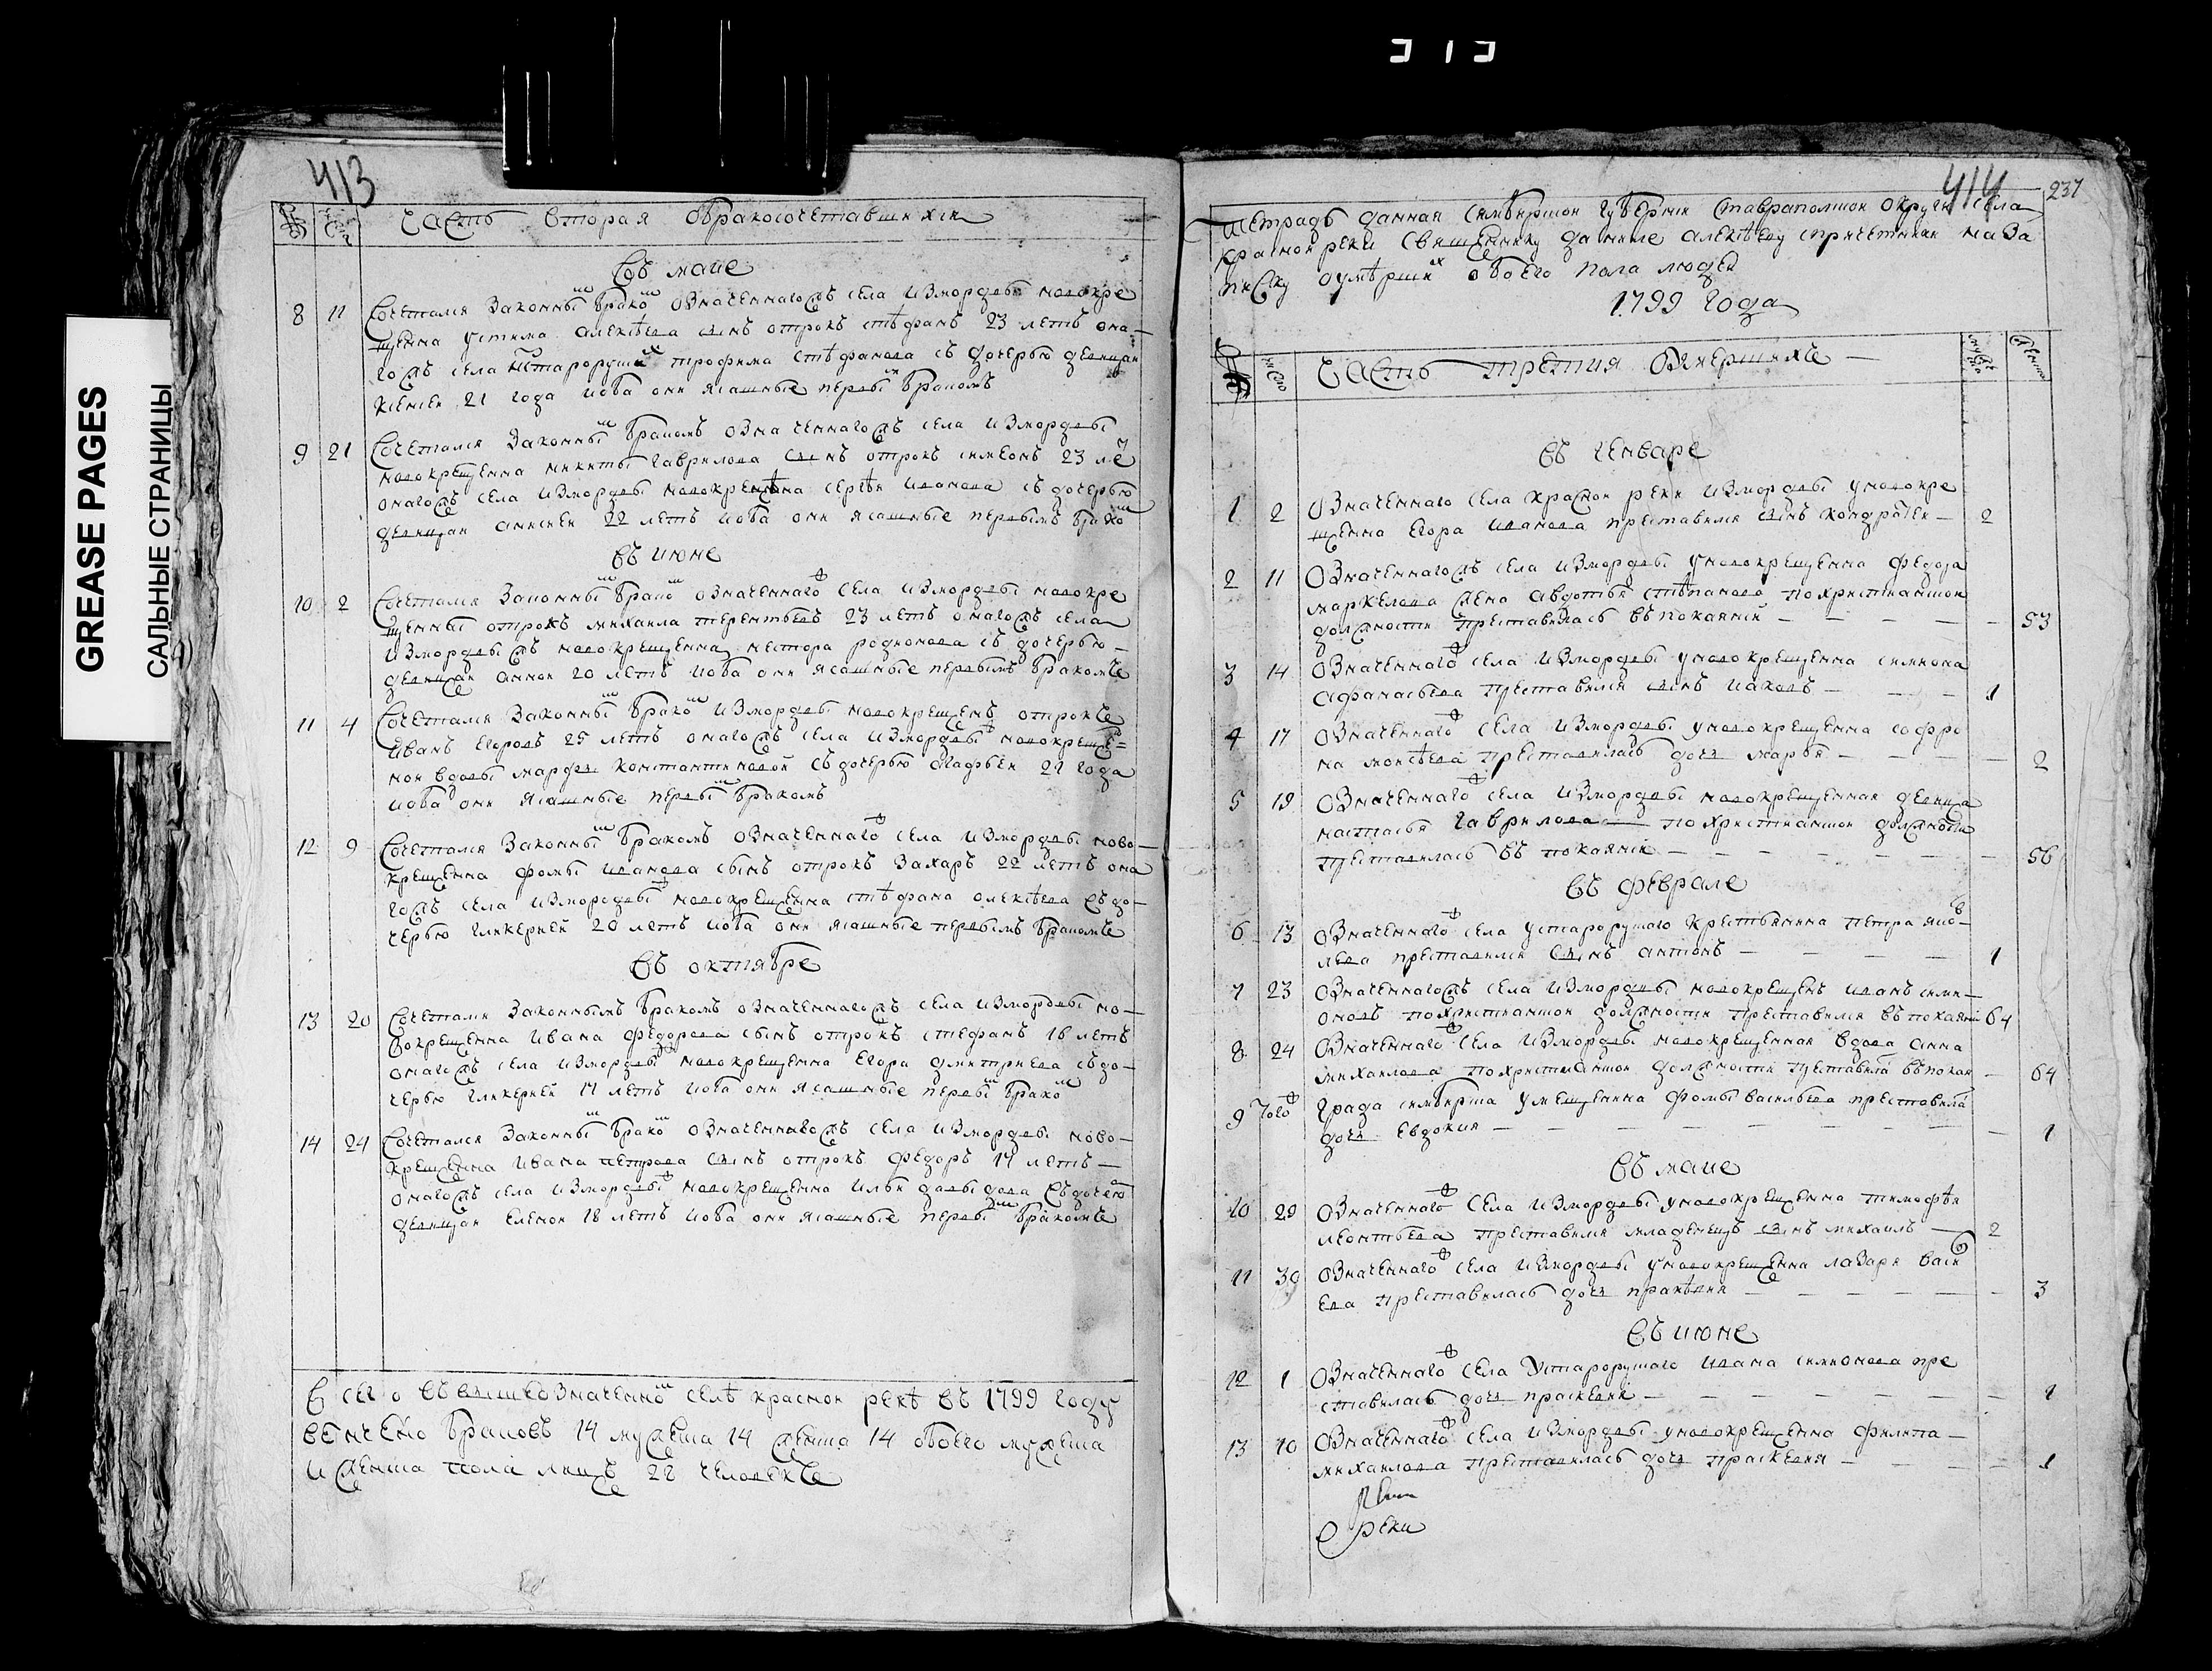 GREASE PAGES
САЛЬНЫЕ СТРАНИЦЫ
413
Часть вторая обракосочетавшихся
Въ маие
8 11 Сочетался законным браком означеннагожъ села измордвы новокре
щенна устима алексѣева сынъ отрокъ стѣфанъ 23 летъ она
гожъ села истароруших трофима стѣфанова съ дочерью девицаи
21 года иоба они ясашные первым бракомъ
9 21 Сочетался законным бракомъ означеннагожъ села измордвы
новокрещенна никиты гаврилова сынъ отрокъ симеонъ 23 ле
онагожъ села измордвы новокрещенна сергѣя иванова съ дочерью
девицаи анисиеи 22 летъ иоба они ясашные первымъ браком
въ июне
10 2 Сочетался законным браком означеннаго села измордвы новокре
щенныи отрокъ михаила терентьевъ 23 летъ онагожъ села
измордвыжъ новокрещенна нестора родионова съ дочерью
девицаи анной 20 летъ иоба они ясашные первымъ бракомъ
11 4 Сочетался законным браком измордвы новокрещенъ отрокъ
Иванъ Егоровъ 25 летъ онагожъ села измордвы новокреще=
нои вдовы марфы константиновой съ дочерью агафьеи 21 года
иоба они ясашные первым бракомъ
12 9 Сочетался законным бракомъ означеннаго села измордвы ново-
крещенна фомы иванова сынъ отрокъ захаръ 22 летъ она
гожъ села измордвы новокрещенна стѣфана алексѣева съ до-
черью гликериеи 20 летъ иоба они ясашные первымъ бракомъ
въ октябре
13 20 Сочетался законнымъ бракомъ означеннагожъ села измордвы но-
вокрещенна ивана федорова сынъ отрокъ стефанъ 16 летъ
онагожъ села измордвы новокрещенна Егора дмитриева съ до-
черью гликериеи 17 летъ иоба они ясашные первым браком
14 24 Сочетался законным браком означеннагожъ села измордвы ново-
крещенна ивана петрова сынъ отрокъ федоръ 17 летъ
онагожъ села измордвы новокрещенна ильи давыдова съ дочерю
девицаи еленои 18 летъ иоба они ясашные первым бракомъ
Всего въ вышеозначенном селѣ красной рекѣ въ 1799 году
венчено браковъ 14 мужеска 14 женска 14 обоего мужеска
и женска пола лицъ 28 человекъ
414
237
Тетрадь данная симбирской губернии ставрапольской округи села
красной реки священнику даниле алексѣеву спричетники на за
писку оумѣрших обоего пола людей
1799 года
число
Часть третия обумершихъ
мужска
женска
въ генваре
1 2 Означеннаго села красной реки измордвы уновокре
щенна Егора иванова преставился сынъ кондратеи 2
2 11 Означеннагожъ села измордвы уновокрещенна федора
маркелова жена авдотья стѣпанова похристианской
должности преставилась въ покаянии 53
3 14 Означеннаго села измордвы уновокрещенна симиона
афанасьева преставился сынъ иаковъ 1
4 17 Означеннаго села измордвы уновокрещенна софро
на моисѣева преставилась дочь марья 2
5 19 Означеннаго села измордвы новокрещенная девица
настасья гаврилова похристианской должности
преставилась въ покаянии 56
въ феврале
6 13 Означеннаго села устарорушаго крестьянина петра яков
лева преставился сынъ антонъ 1
7 23 Означеннагожъ села измордвы новокрещенъ иванъ сими-
оновъ похристианской должности преставился въ покаянии 64
8 24 Означеннаго села измордвы новокрещенная вдова анна
михаилова похристианской должности преставила въ покаян 64
9 Того града симбирска умещенина фомы васильева преставила
дочь Евдокия 1
въ маие
10 29 Означеннаго села измордвы уновокрещенна тимофѣя
леонтьева преставился младенецъ сынъ михаилъ 2
11 30 Означеннаго села измордвы уновокрещенна лазаря васил
ева преставилась дочь 3
въ июне
12 1 Означеннаго села устарорушаго ивана симионова пре
ставилась дочь праскевия 1
13 10 Означеннаго села измордвы уновокрещенна филипа
михаилова преставилась дочь праскевия 1
реки